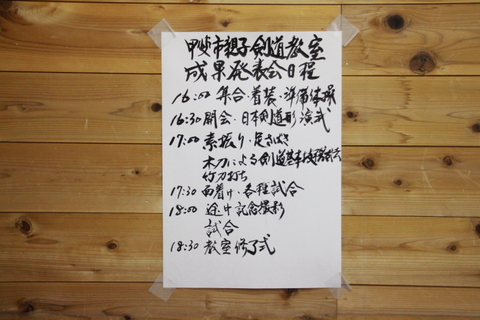 甲斐市親子剣道教室
成果発表会日程
16:00 集合・着装・準備体操
16:30 開会・日本剣道形演武
17:00 素振り・足さばき
木刀による剣道基本技稽古法
竹刀打ち
17:30 面着け・各種試合
18:00 途中記念撮影
試合
18:30 教室修了式